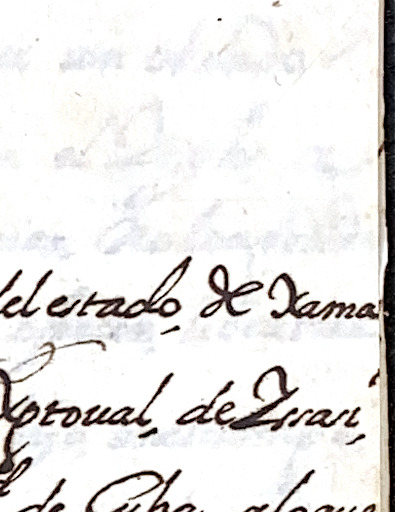 del estado de Xama
Xpoual de Yssasi
de Cuba aloque